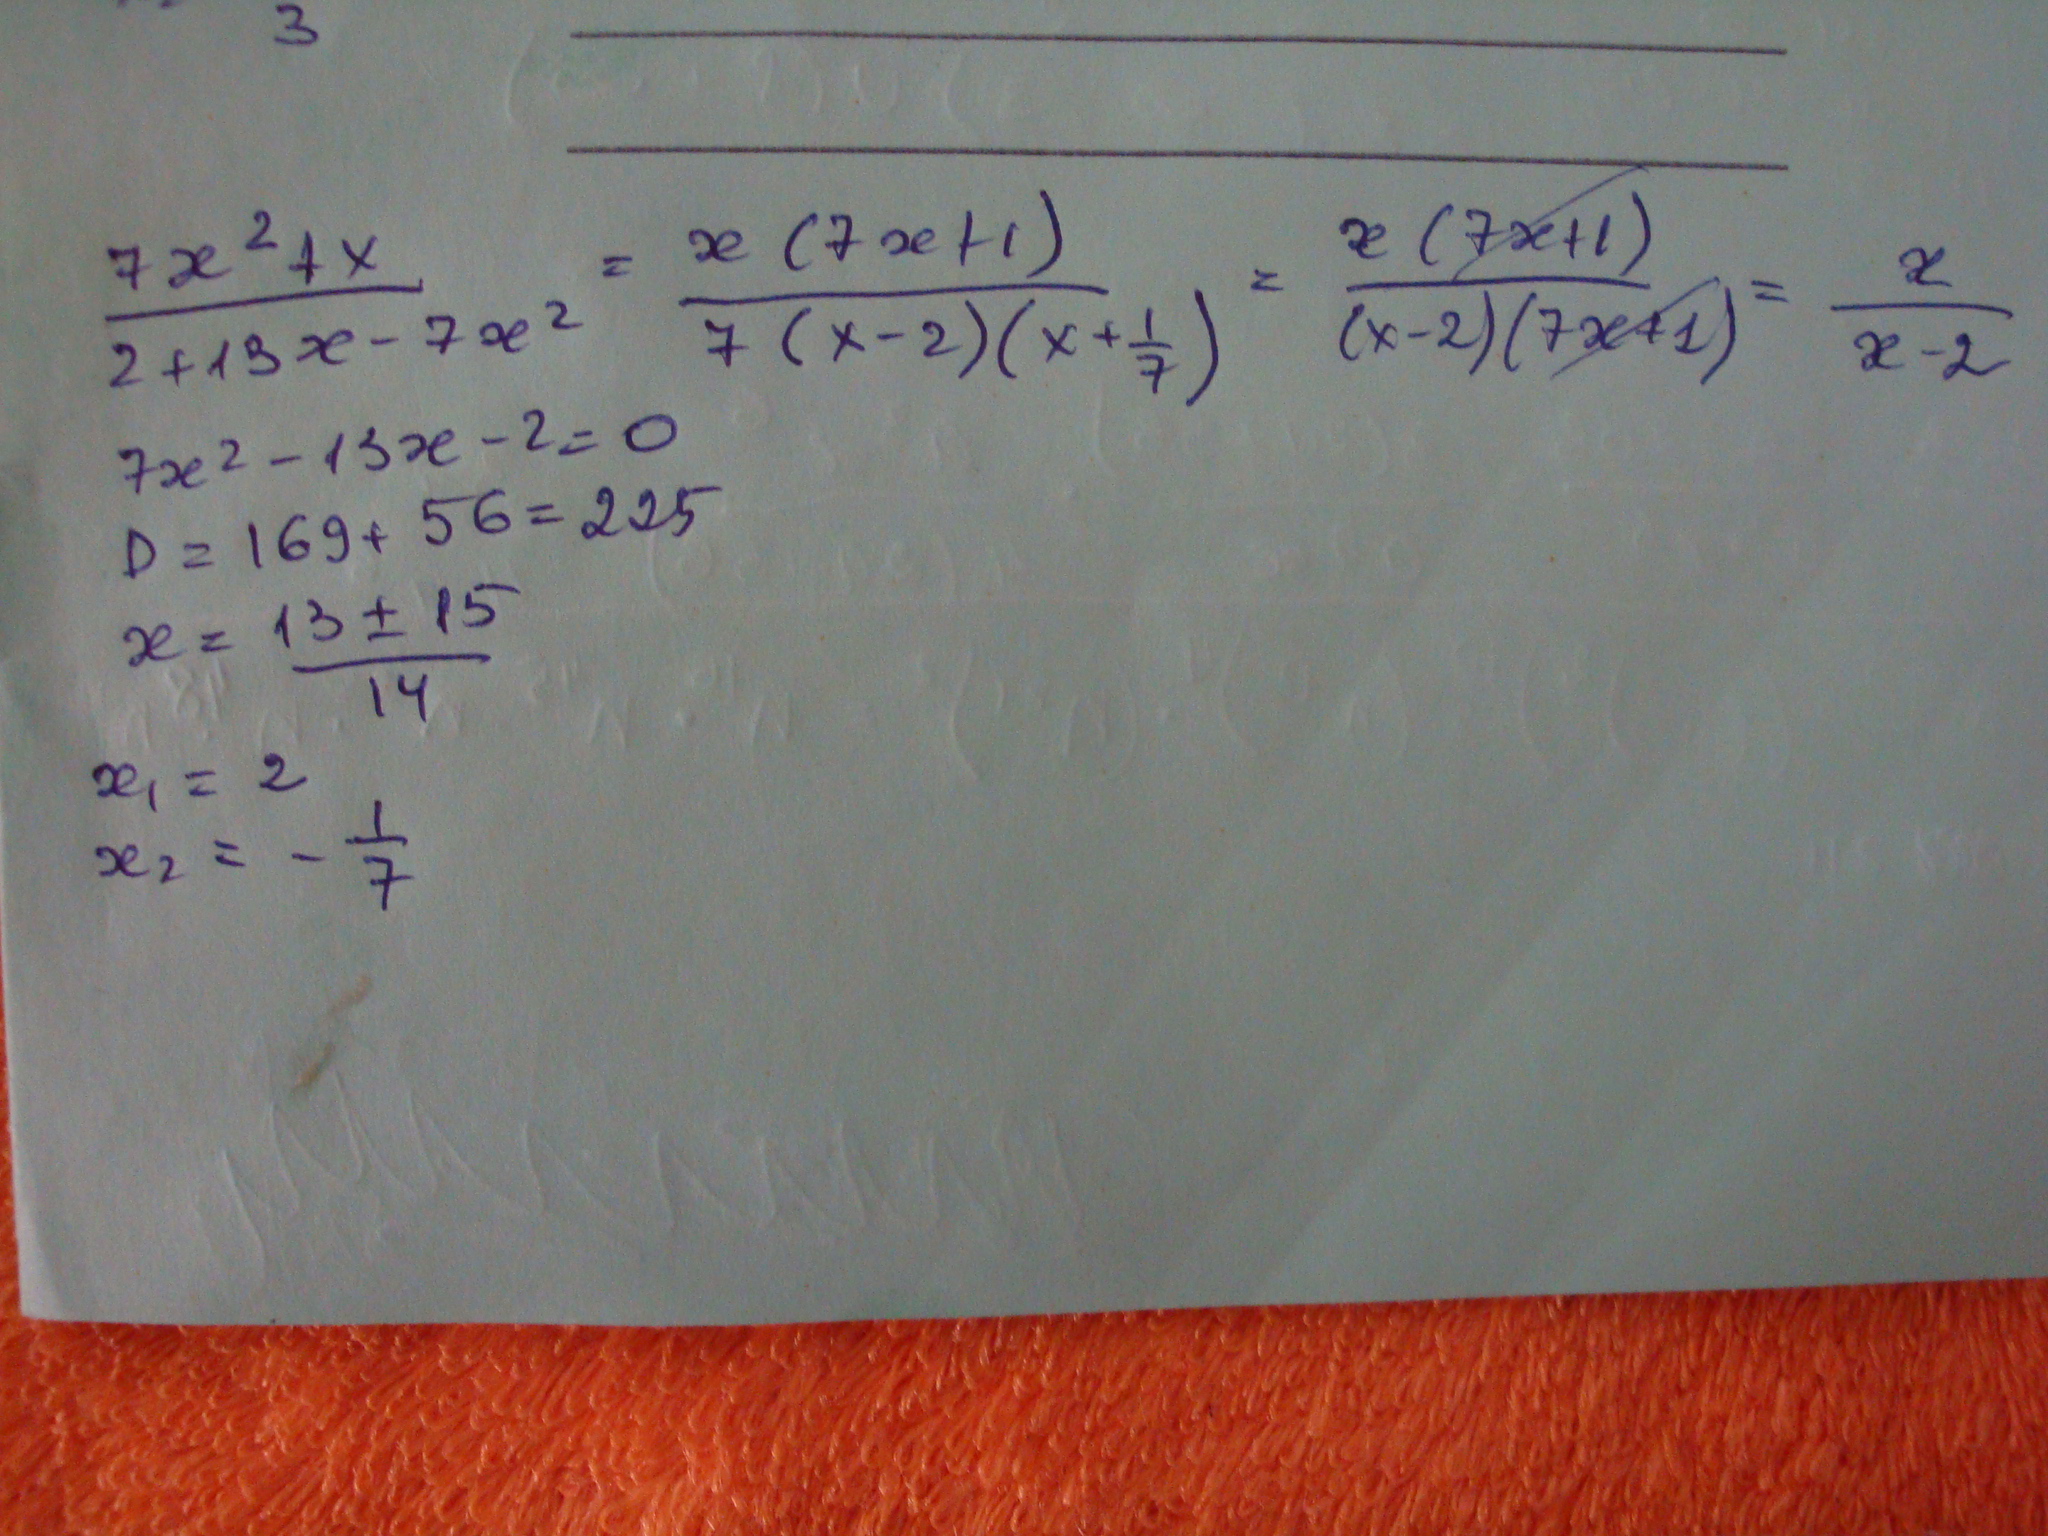 3
(7x²+x)/(2+13x-7x²) = x(7x+1)/(7(x-2)(x+1/7)) = x(7x+1)/((x-2)(7x+1)) = x/(x-2)
7x²-13x-2=0
D=169+56=225
x=(13±15)/14
x₁=2
x₂=-1/7